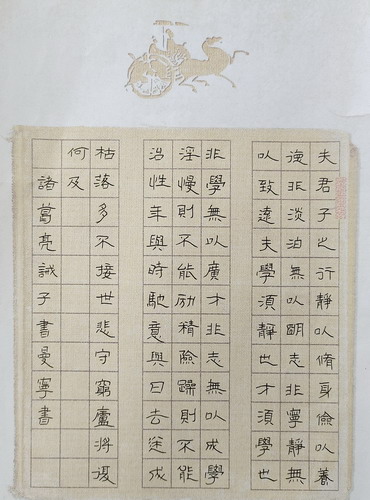 夫君子之行靜以脩身儉以養
德非淡泊無以明志非寧靜無
以致遠夫學須靜也才須學也
非學無以廣才非志無以成學
淫慢則不能励精險躁則不能
治性年與時馳意與日去遂成
枯落多不接世悲守窮廬將復
何及
諸葛亮誡子書曼寧書